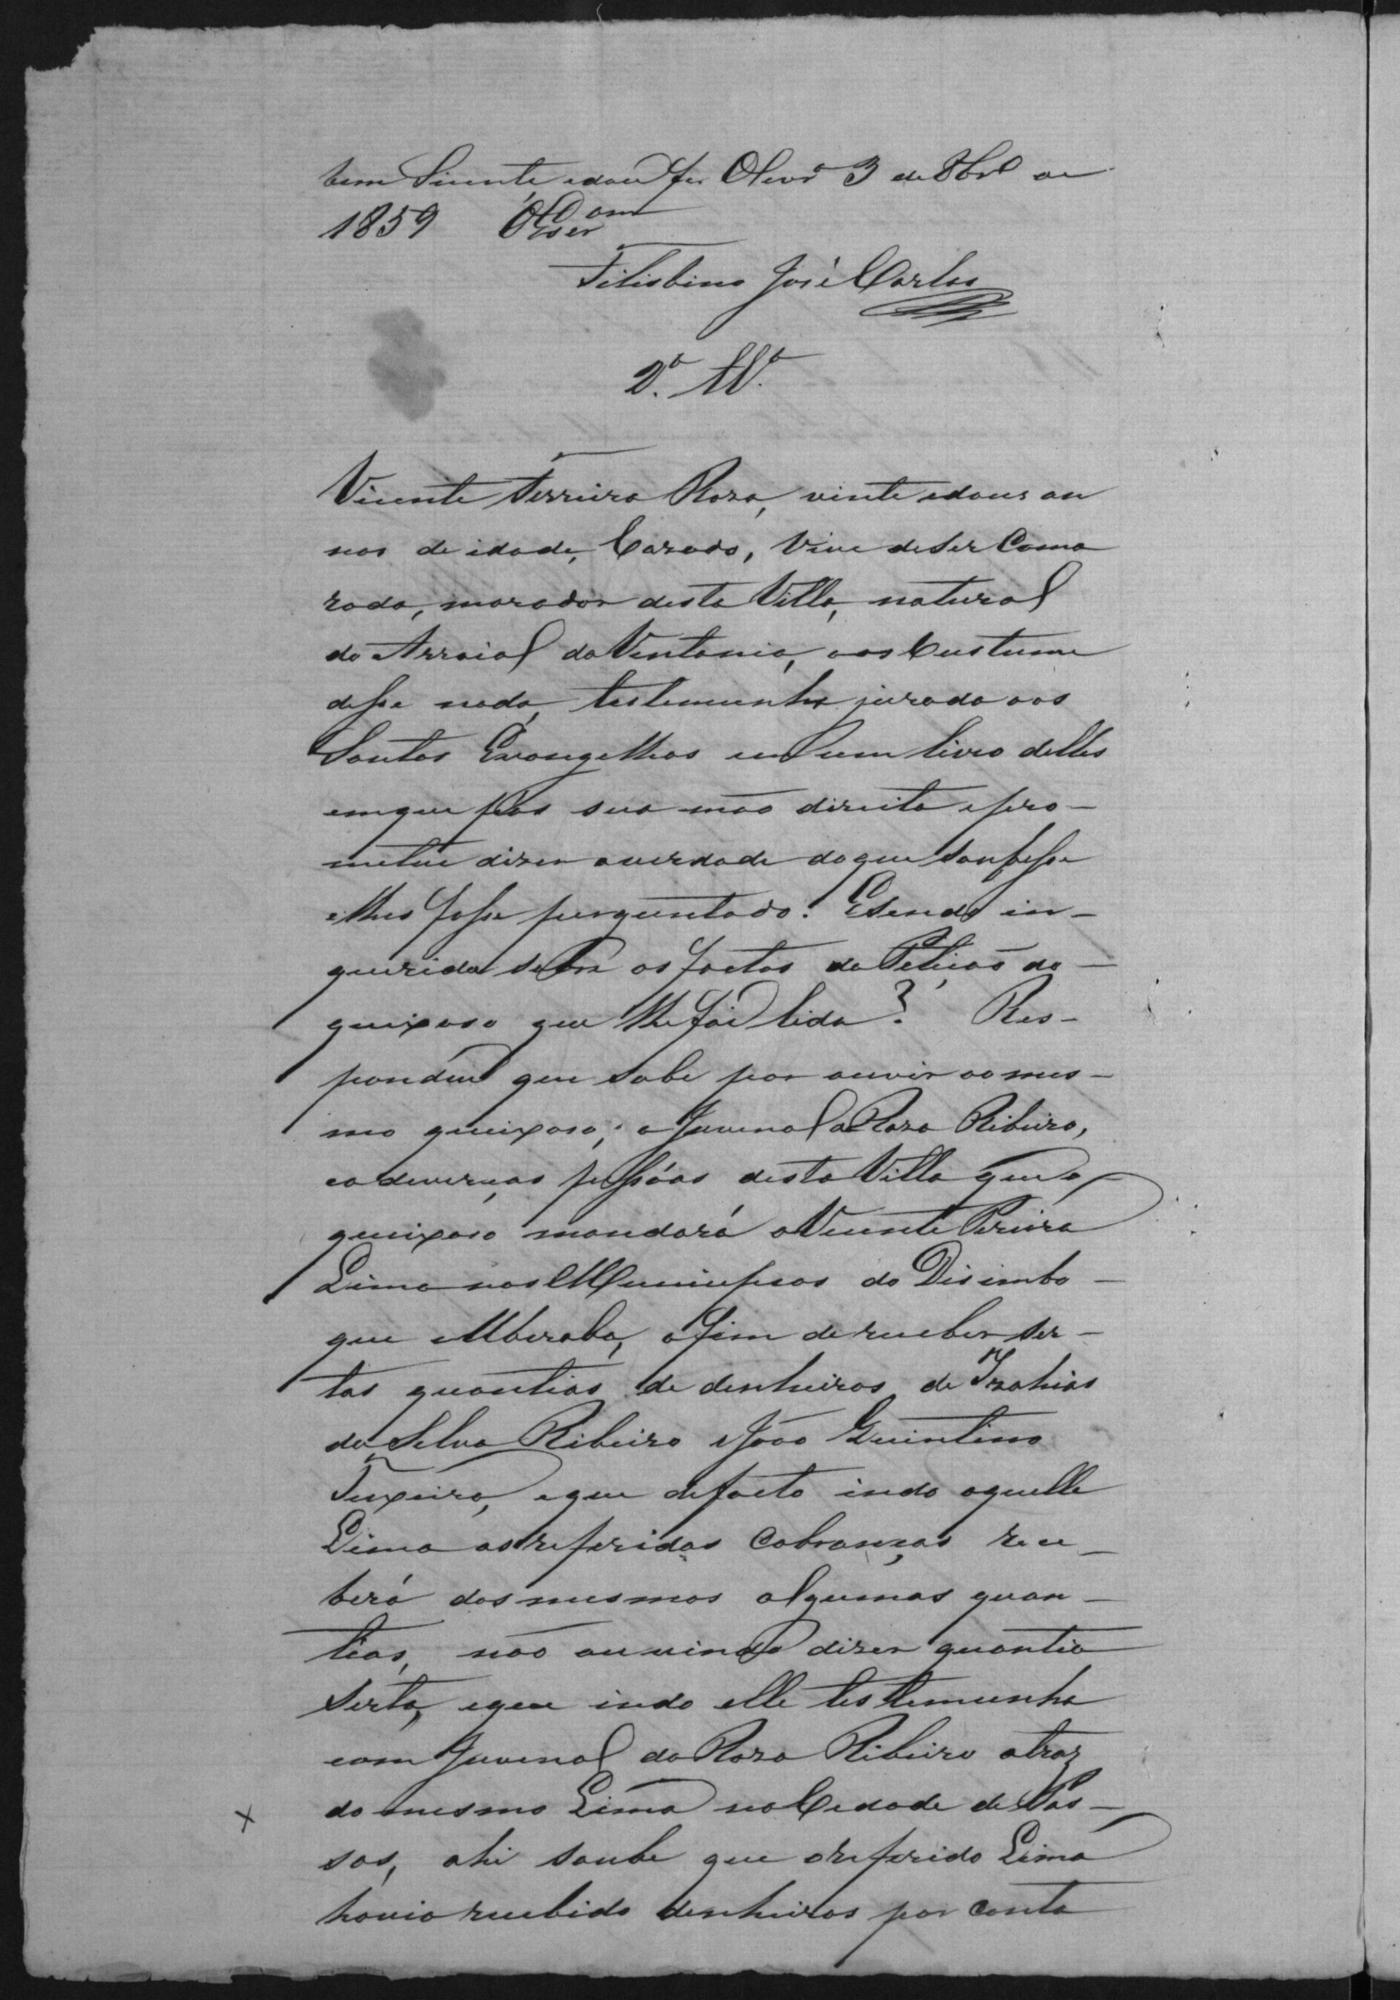 bem Siente, edou fe. Olivrª 3 de 8brº de
1859 O Esc.am
Filisbino José Carlos
2.ª Tt.ª
Vicente Ferreira Roza, vinte edous an
nos de idade, Cazado, Vive deser Cama
rada, morador desta Villa, natural
do Arraial da Ventania, aos Custume
disse nada, testemunha jurada aos
Santos Evangelhos em um livro delles
emque pôs sua mão direita, epro-
metue dizer averdade doque soubesse
elhes fosse perguntado. Esendo in-
querida sobre os factos da Petição do
queixoso que lhe foi lida? Res-
pondeu que sabe por ouvir ao mes-
mo queixoso, a Juvenal da Roza Ribeiro,
eadeverças pessôas desta Villa que o
queixoso mandará a Vicente Pereira
Lima nos Municipios do Disimbo-
que eUberaba, afim dereceber ser-
tas quantias de denheiros de Izahias
da Silva Ribeiro eJoão Quintino
Teixeira, eque defacto indo aquelle
Lima as referidas Cobranças rece-
berá dos mesmos algumas quan-
tias, não ouvindo dizer quantia
Serta, eque indo elle testemunha
com Juvenal da Roza Ribeiro atraz
do mesmo Lima na Cidade de Pas-
sos, ahi soube que oreferido Lima
havia recebido denheiros por conta